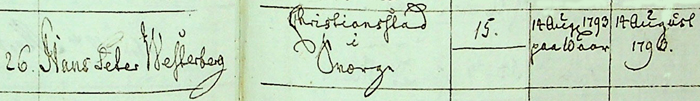 26. Hans Peter Westerberg
Christianstad
i
Sverge
15.
14 Aug 1793
paa 3 aar
14 August
1796.